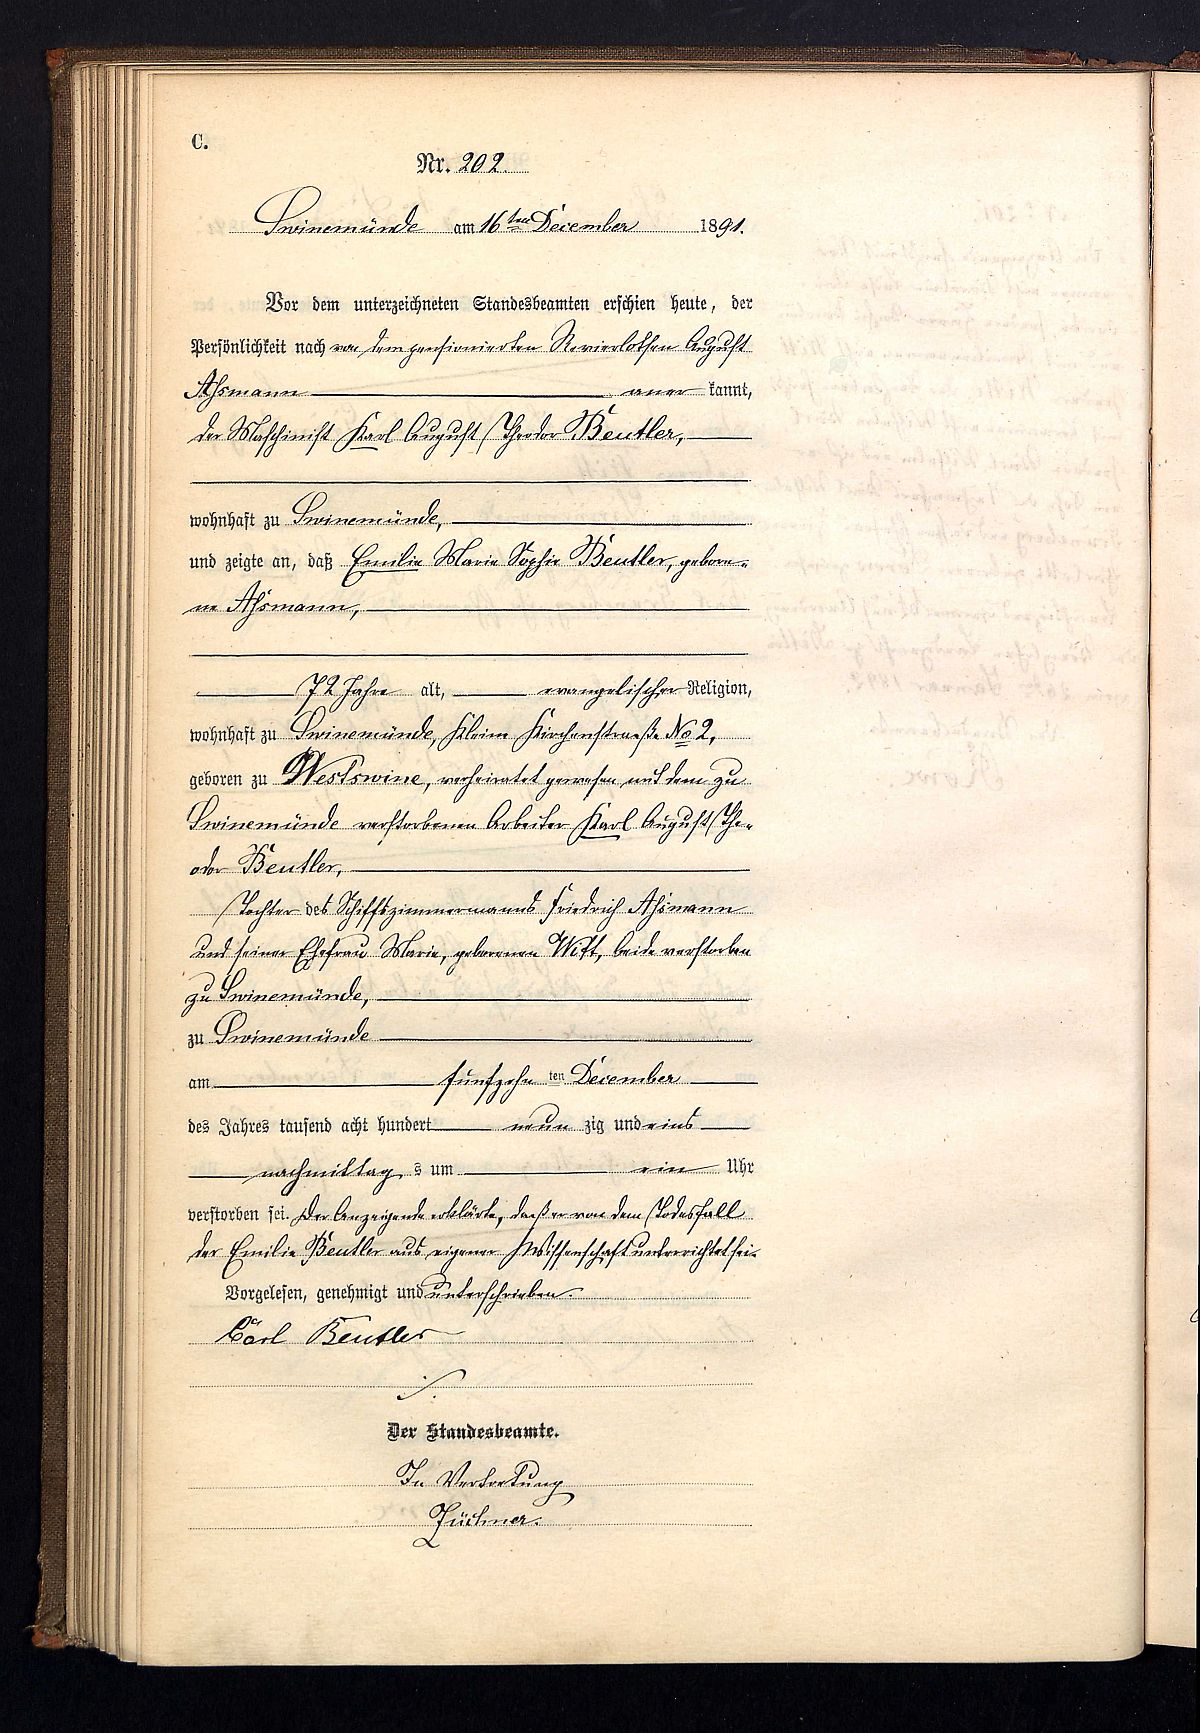 C.
Nr. 202.
Swinemünde am 16ten December 1891.
Vor dem unterzeichneten Standesbeamten erschien heute, der
Persönlichkeit nach von dem pensionierten Revierlotsen August
Aßmann aner kannt,
der Maschinist Karl August Theodor Beutler,
wohnhaft zu Swinemünde,
und zeigte an, daß Emilie Marie Sophie Beutler, gebore-
ne Aßmann,
72 Jahre alt, evangelischer Religion,
wohnhaft zu Swinemünde, Kleine Kirchenstraße No 2,
geboren zu Westswine, verheiratet gewesen mit dem zu
Swinemünde verstorbenen Arbeiter Karl August The-
odor Beutler,
Tochter des Schiffszimmermanns Friedrich Aßmann
und seiner Ehefrau Marie, geborenen Witt, beide verstorben
zu Swinemünde,
zu Swinemünde
am fünfzehn ten December
des Jahres tausend acht hundert neun zig und eins
nachmittag s um ein Uhr
verstorben sei. Der Anzeigende erklärte, daß er von dem Todesfall
der Emilie Beutler aus eigener Wissenschaft unterrichtet sei.
Vorgelesen, genehmigt und unterschrieben.
Carl Beutler
Der Standesbeamte.
In Vertretung
Züchner.